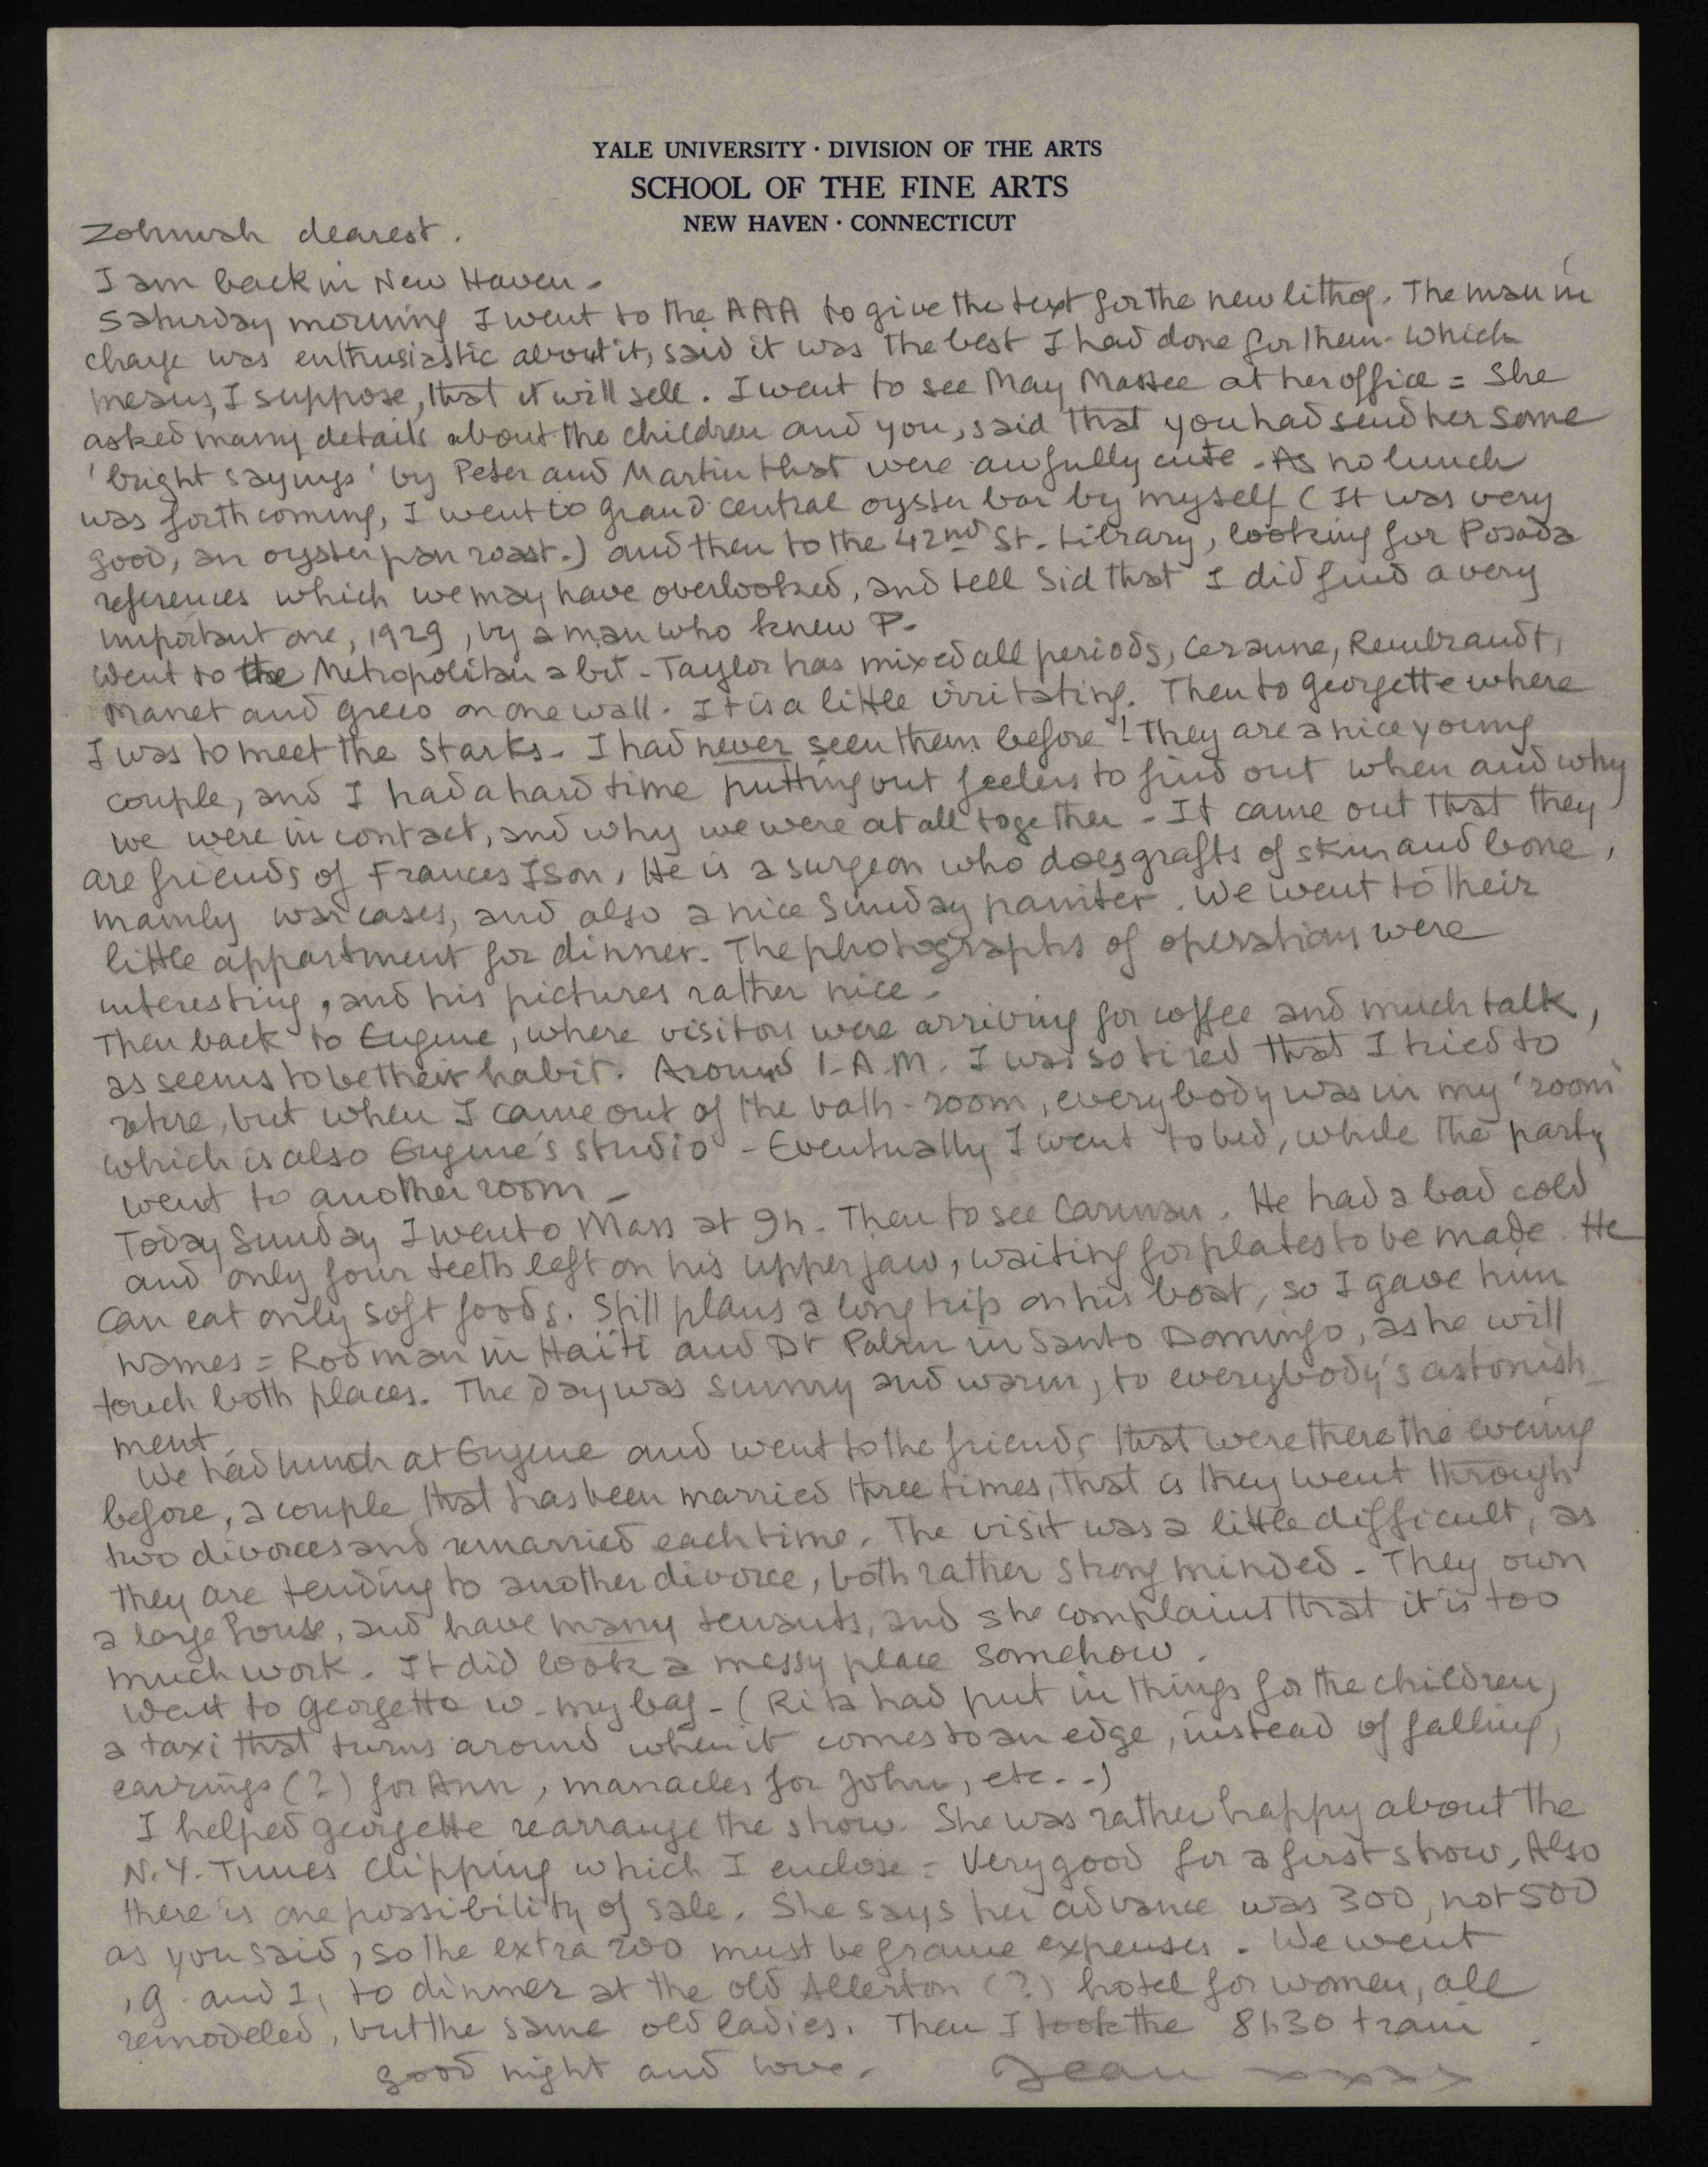 YALE UNIVERSITY · DIVISION OF THE ARTS
SCHOOL OF THE FINE ARTS
NEW HAVEN · CONNECTICUT
Zohmah dearest.
I am back in New Haven.
Saturday morning I went to the AAA to give the text for the new lithog. The man in
charge was enthusiastic about it, said it was the best I had done for them - which
means, I suppose, that it will sell. I went to see May Massee at her office = She
asked many details about the children and you, said that you had send her some
'bright sayings' by Peter and Martin that were awfully cute. As no lunch
was forthcoming, I went to grand central oyster bar by myself (It was very
good, an oyster pan roast.) and then to the 42nd St. Library, looking for Posada
references which we may have overlooked, and tell Sid that I did find a very
important one, 1929, by a man who knew P.
Went to the Metropolitan a bit - Taylor has mixed all periods, Cezanne, Rembrandt,
Manet and Greco on one wall. It is a little irritating. Then to Georgette where
I was to meet the Starks. I had never seen them before! They are a nice young
couple, and I had a hard time putting out feelers to find out when and why
we were in contact, and why we were at all together - It came out that they
are friends of Frances Ison. He is a surgeon who does grafts of skin and bone,
mainly war cases, and also a nice Sunday painter. We went to their
little appartment for dinner. The photographs of operations were
interesting, and his pictures rather nice.
Then back to Eugene, where visitors were arriving for coffee and much talk,
as seems to be their habit. Around 1. A.M. I was so tired that I tried to
retire, but when I came out of the bath-room, everybody was in my 'room'
which is also Eugene's studio - Eventually I went to bed, while the party
went to another room -
Today Sunday I went o Mass at 9h. Then to see Carman. He had a bad cold
and only four teeth left on his upper jaw, waiting for plates to be made. He
can eat only soft foods. Still plans a long trip on his boat, so I gave him
names = Rodman in Haïti and Dr Palm in Santo Domingo, as he will
touch both places. The day was sunny and warm, to everybody's astonish-
ment.
We had lunch at Eugene and went to the friends that were there the evening
before, a couple that has been married three times, that is they went through
two divorces and remarried each time. The visit was a little difficult, as
they are tending to another divorce, both rather strong minded - They own
a large house, and have many tenants, and she complains that it is too
much work. It did look a messy place somehow.
Went to Georgette w. my bag - (Rita had put in things for the children,
a taxi that turns around when it comes to an edge, instead of falling,
earrings (?) for Ann, manacles for John, etc..)
I helped Georgette rearrange the show. She was rather happy about the
N.Y. Times clipping which I enclose = Very good for a first show. Also
there is one possibility of sale. She says her advance was 300, not 500
as you said, so the extra 200 must be frame expenses. We went
, G. and I, to dinner at the old Allerton (?) hotel for women, all
remodeled, but the same old ladies. Then I took the 8h30 train.
good night and love. Jean xxxx